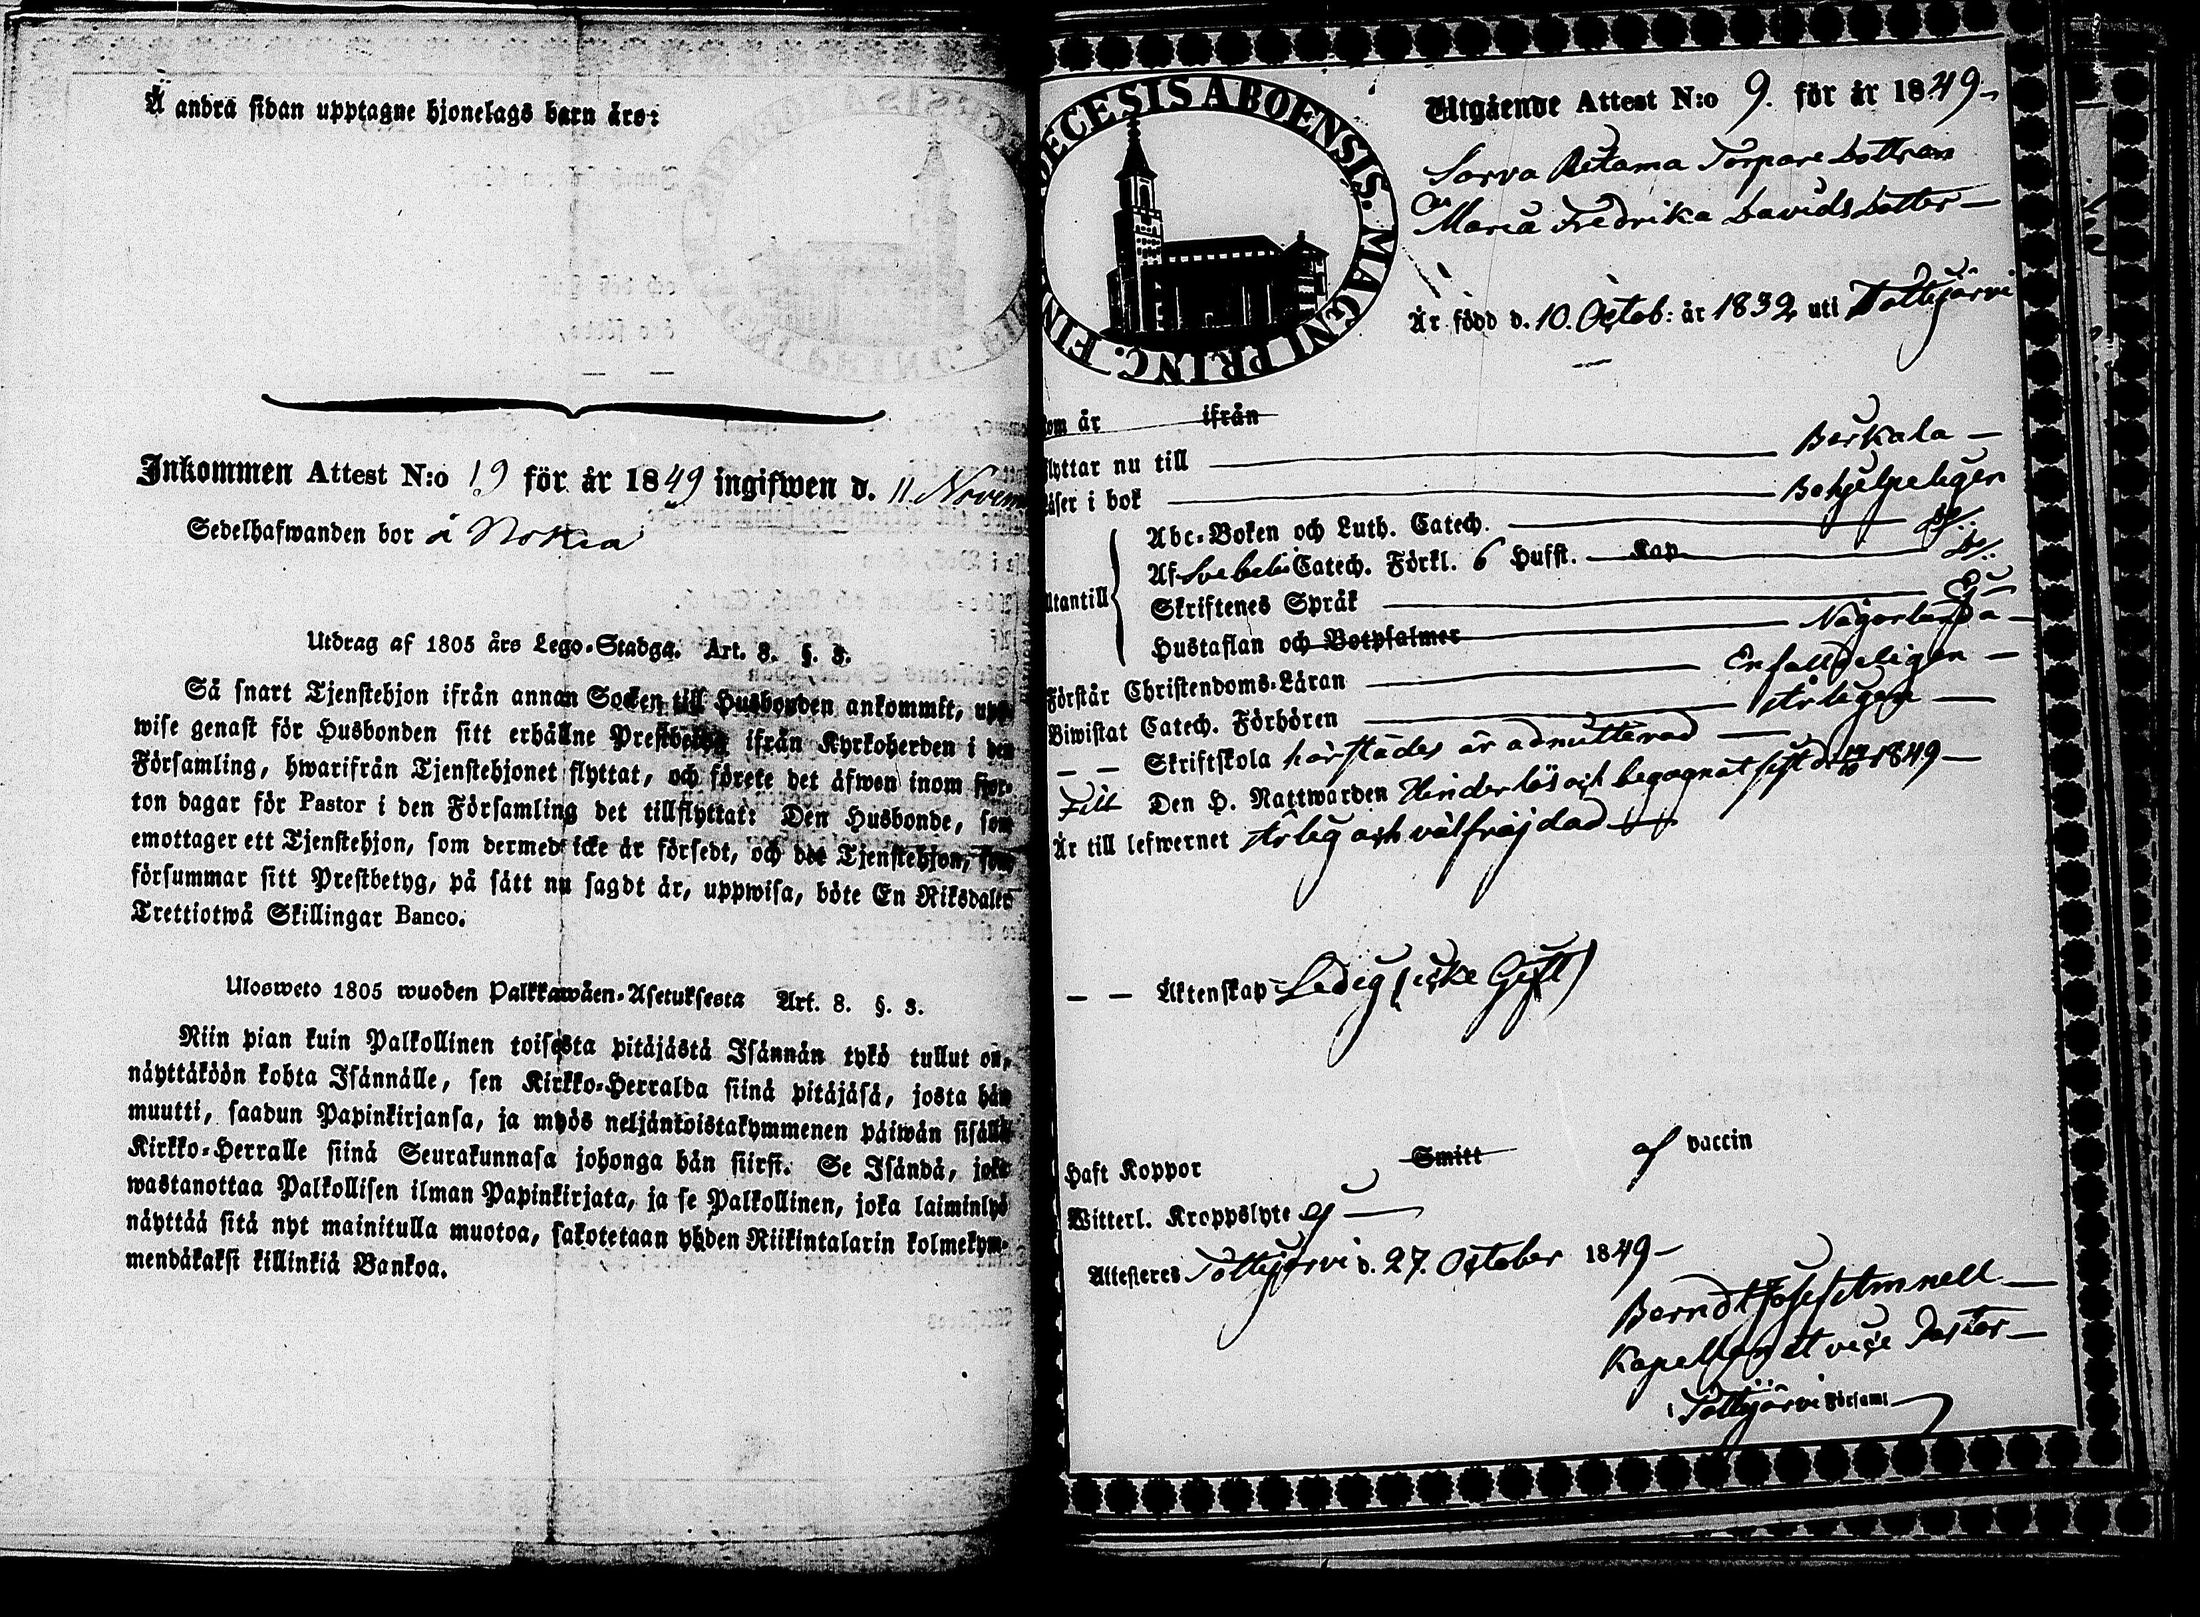 Å andra sidan upptagne hjonelags barn äro:
Inkommen Attest N:o 19 för år 1849 ingifwen d. 11. Novem
Sedelhafwanden bor å Nokia
Utdrag af 1805 års Lego-Stadga. Art. 8. §. 3.
Så snart Tjenstehjon ifrån annan Socken till Husbonden ankommit, upp-
wise genast för Husbonden sitt erhållne Prestbetyg ifrån Kyrkoherden i den
Församling, hwarifrån Tjenstehjonet flyttat, och förete det äfwen inom fjor-
ton dagar för Pastor i den Församling det tillflyttat: Den Husbonde, som
emottager ett Tjenstehjon, som dermed icke är försedt, och det Tjenstehjon, som
försummar sitt Prestbetyg, på sätt nu sagdt är, uppwisa, böte En Riksdaler
Trettiotwå Skillingar Banco.
Ulosweto 1805 wuoden Palkkawäen-Asetuksesta Art. 8. §. 3.
Niin pian kuin Palkollinen toisesta pitäjästä Isännän tykö tullut on,
näyttäköön kohta Isännälle, sen Kirkko-Herralda siinä pitäjäsä, josta hän
muutti, saadun Papinkirjansa, ja myös neljäntoistakymmenen päiwän sisällä
Kirkko-Herralle siinä Seurakunnasa johonga hän siirsi. Se Isändä, joka
wastanottaa Palkollisen ilman Papinkirjata, ja se Palkollinen, joka laiminlyö
näyttää sitä nyt mainitulla muotoa, sakotetaan yhden Riikintalarin kolmekym-
mendäkaksi killinkiä Bankoa.
DECESIS ABOENSIS. MAGNI PRINC. FIN
Utgående Attest N:o 9. för år 1849
Sorva Retama Torpare Dottren
Maria Fredrika Davidsdotter
Är född d. 10. Octob: år 1832 uti Tottijärvi
om är ifrån
lyttar nu till Berkala
äser i bok Behjelpeligen
Utantill
Abc-Boken och Luth. Catech. d:o
Af Svebelii Catech. Förkl. 6 Hufst. Kap. d:o
Skriftenes Språk Ej
Hustaflan och Botpsalmer Någorlunda
Förstår Christendoms-Läran Enfaldeligen
Biwistat Catech. Förhören Årligen
— — Skriftskola härstädes är admitterad
Till Den H. Nattwarden Hinderlös och begagnat sist d. 1849
Är till lefwernet Ärlig och välfräjdad
— — Äktenskap Ledig (icke Gift)
Haft Koppor Smitt af vaccin
Witterl. Kroppslyte ej
Attesteres Tottijärvi d. 27. October 1849
Berndt Josef Amnell
Kapellan et vice Pastor
i Tottijärvi Församl